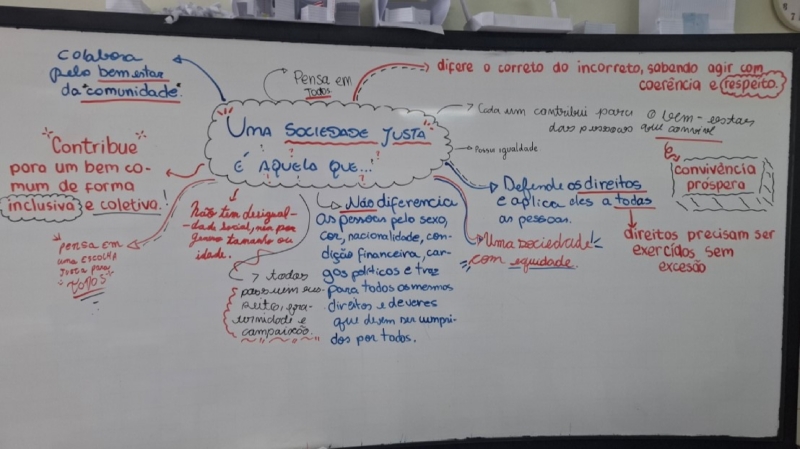 colabora
pelo bem estar
da "comunidade".
Pensa em
todos
difere o correto do incorreto, sabendo agir com
coerência e respeito.
UMA SOCIEDADE JUSTA
É AQUELA QUE...
Cada um contribui para o bem-estar
das pessoas que convive
convivência
próspera
Possui igualdade
"Contribue"
para um bem co-
mum de forma
inclusiva e coletiva!
pensa em
uma escolha
justa para
todos
Não tem desigual-
dade social, nem por
genero tamanho ou
idade.
todas
possuem
campaixão.
Não diferencia
as pessoas pelo sexo,
cor, nacionalidade, con-
dição financeira, car-
gos políticos e traz
para todos os mesmos
direitos e deveres
que devem ser cumpri-
dos por todos.
Uma sociedade
com equidade.
Defende os direitos
e aplica eles a todas
as pessoas.
direitos precisam ser
exercidos sem
excesão